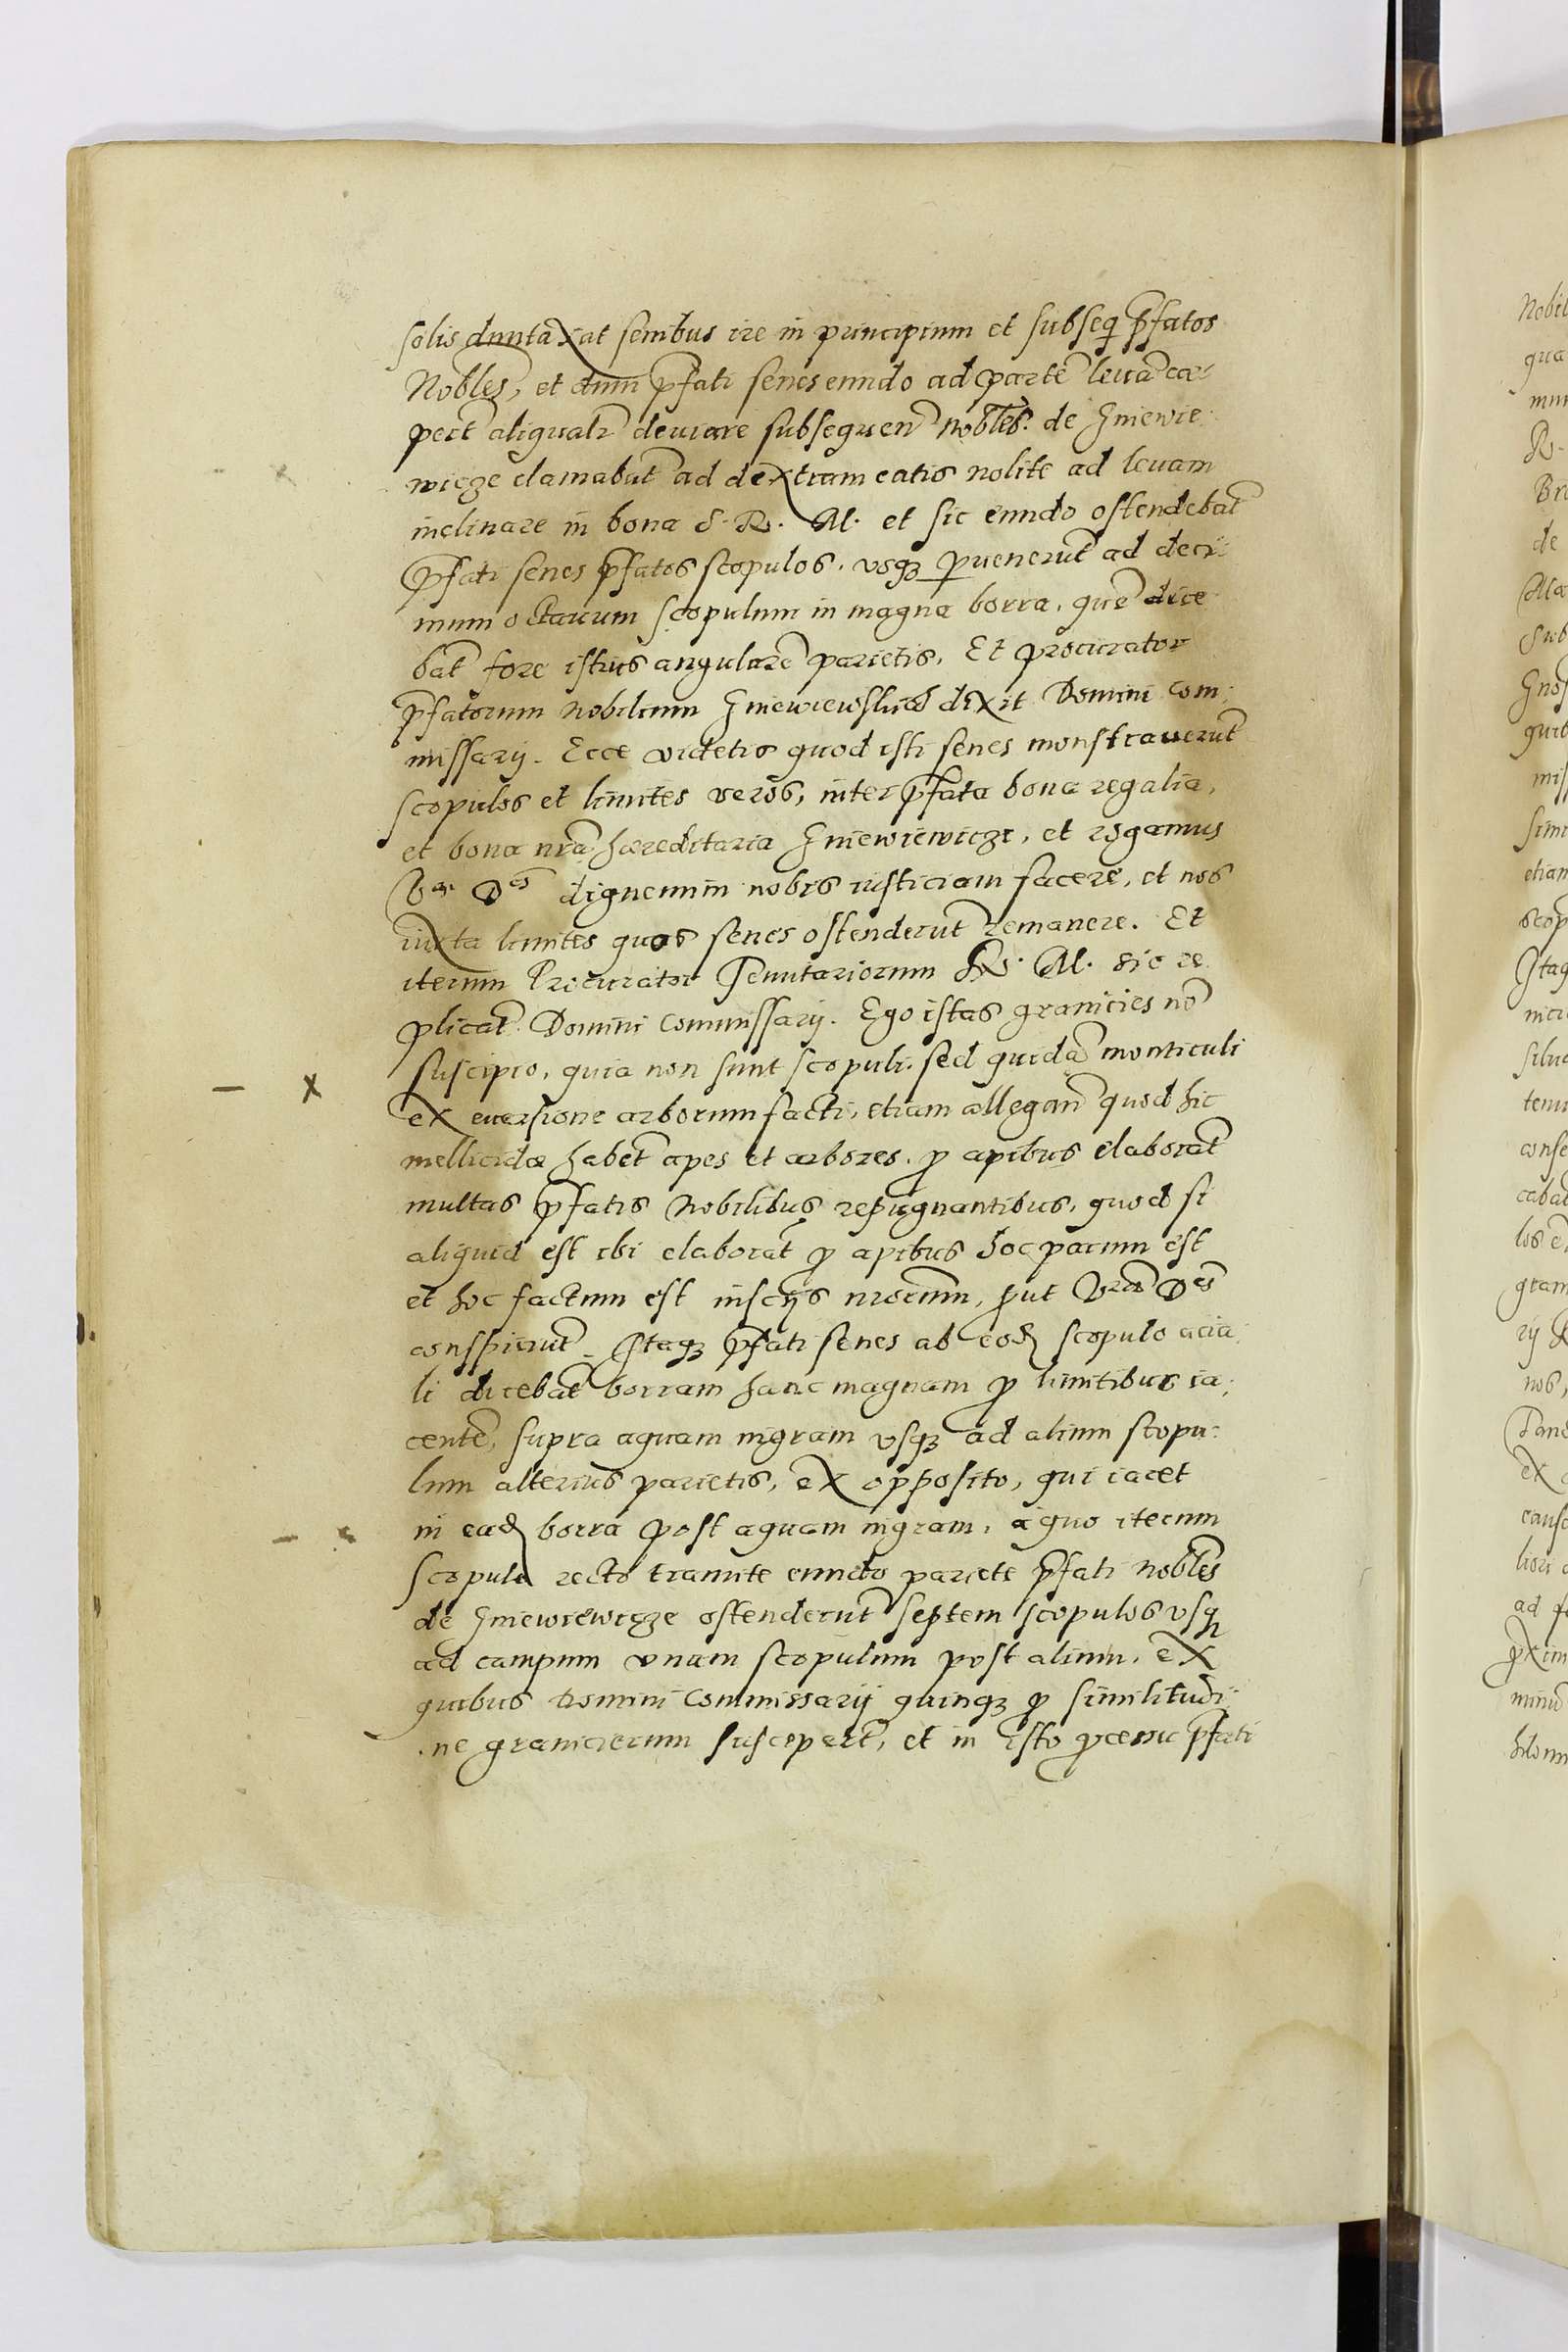 solis duntaxat senibus ire in principium et subseq p̄fatos
Nobles, et dum p̄fati senes eundo ad parte᷉ leua᷉ cæ-
pert᷉ aliqualr᷉ deuiare subsequen᷉ nobles. de Gniewie
wicze clamabat᷉ ad dextram eatis nolite ad leuam
inclinare in bona S. R. M. et sic eundo ostendebat᷉
p̄fati senes p̄fatos scopulos, vsq3 puenerut᷉ ad deci-
mum octauum scopulum in magna borra, que᷉ dice
bat᷉ fore istius angulare᷉ parietis. Et procurator
p̄fatorum nobilium Gniewiewskich dixit Domini com:
missarij. Ecce videtis quod isti senes monstrauerut᷉
scopulos et limites veros, inter p̄fata bona regalia,
et bona nra᷉ hæreditaria Gniewiewicze, et rogamus
V᷉ræ D᷉es dignemini nobis iusticiam facere, et nos
iuxta limites quos senes ostenderut᷉ remanere. Et
iterum Procurator Tenutariorum R. M. sic re
plicat᷉. Domini Commissarij. Ego istas granicies no᷉
suscipio, quia non sunt scopuli, sed quida᷉ monticuli
ex euersione arborum facti, etiam allegan᷉ quod hic
mellicidæ habet᷉ apes et arbores, p apibus elaborat᷉
multas p̄fatis Nobilibus repugnantibus, quod si
aliquid est ibi elaborat᷉ p apibus hoc parum est
et hoc factum est inscijs nrorum, put Vræ᷉ D᷉es
conspiciut᷉. Itaq3 p̄fati senes ab eod scopulo acia:
li dicebat᷉ borram hanc magnam p limitibus ia:
cente᷉, supra aquam nigram vsq3 ad alium scopu:
lum alterius parietis, ex opposito, qui iacet
in ead borra post aquam nigram, a quo iterum
scopulo recto tramite eundo pariete p̄fati nobles
de Gniewiewicze ostenderut᷉ septem scopulos vsq
ad campum vnum scopulum post alium, ex
quibus Domini Commissarij quinq3 p similitudi:
ne granicierum suscepert᷉, et in isto pcessu p̄fati
Nobil
qua
mun
R.
de
Sub
mis
etiam
scop
Itaq
tenu
conse
cabat
gram
rij
nos,
ex
ad